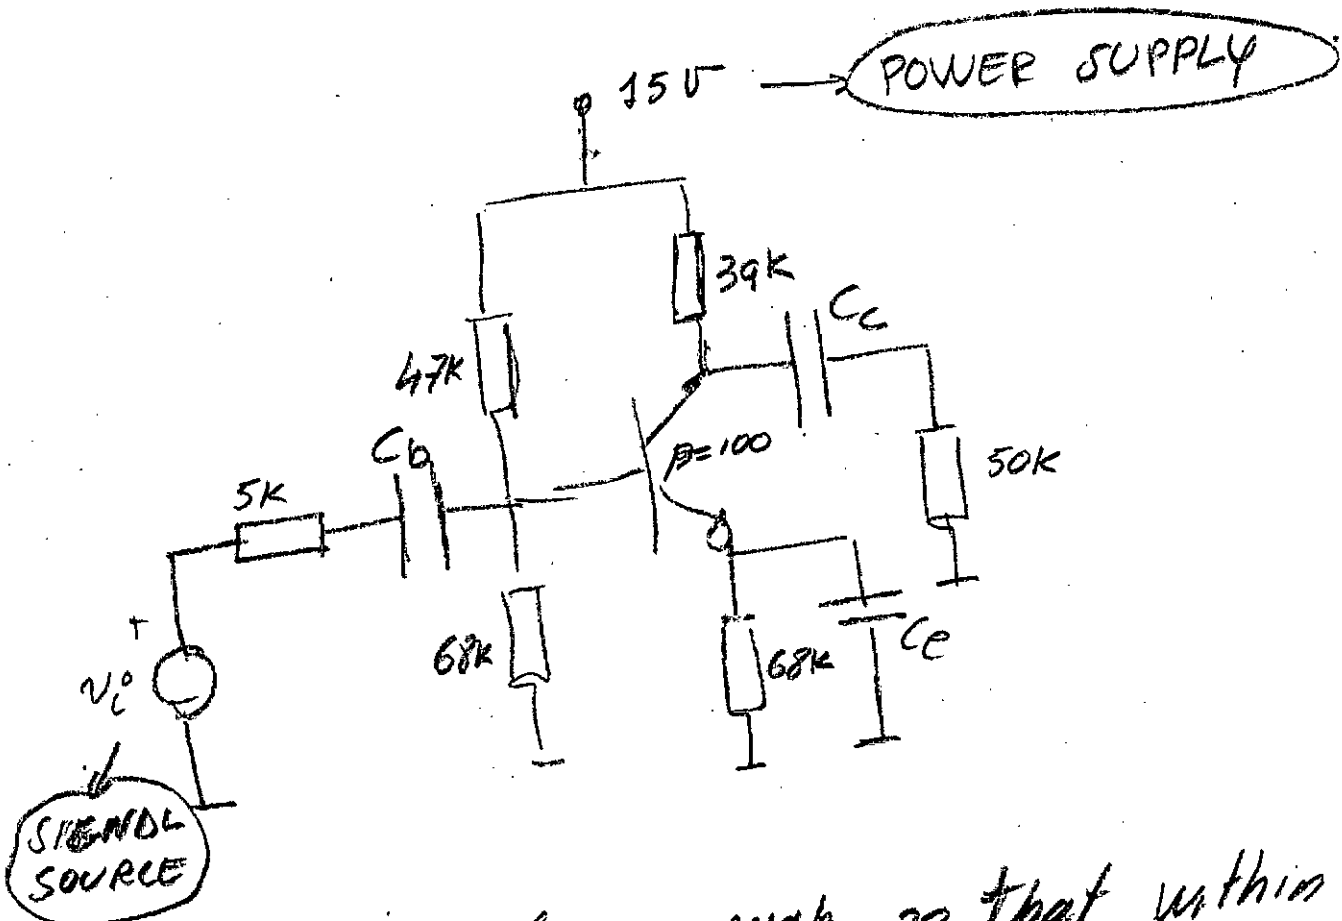 15V → POWER SUPPLY
39K
Cc
47K
Cb
β=100
50K
5K
+
68K
68K
Ce
vi
SIGNAL
SOURCE
so that within